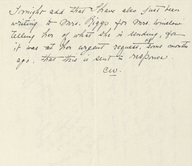 I might add that I have also just been
writing to Mrs. Biggs for Mrs. Winslow
telling her of what she is sending, for
it was at her urgent request, some months
ago, that this is sent & response
CW.